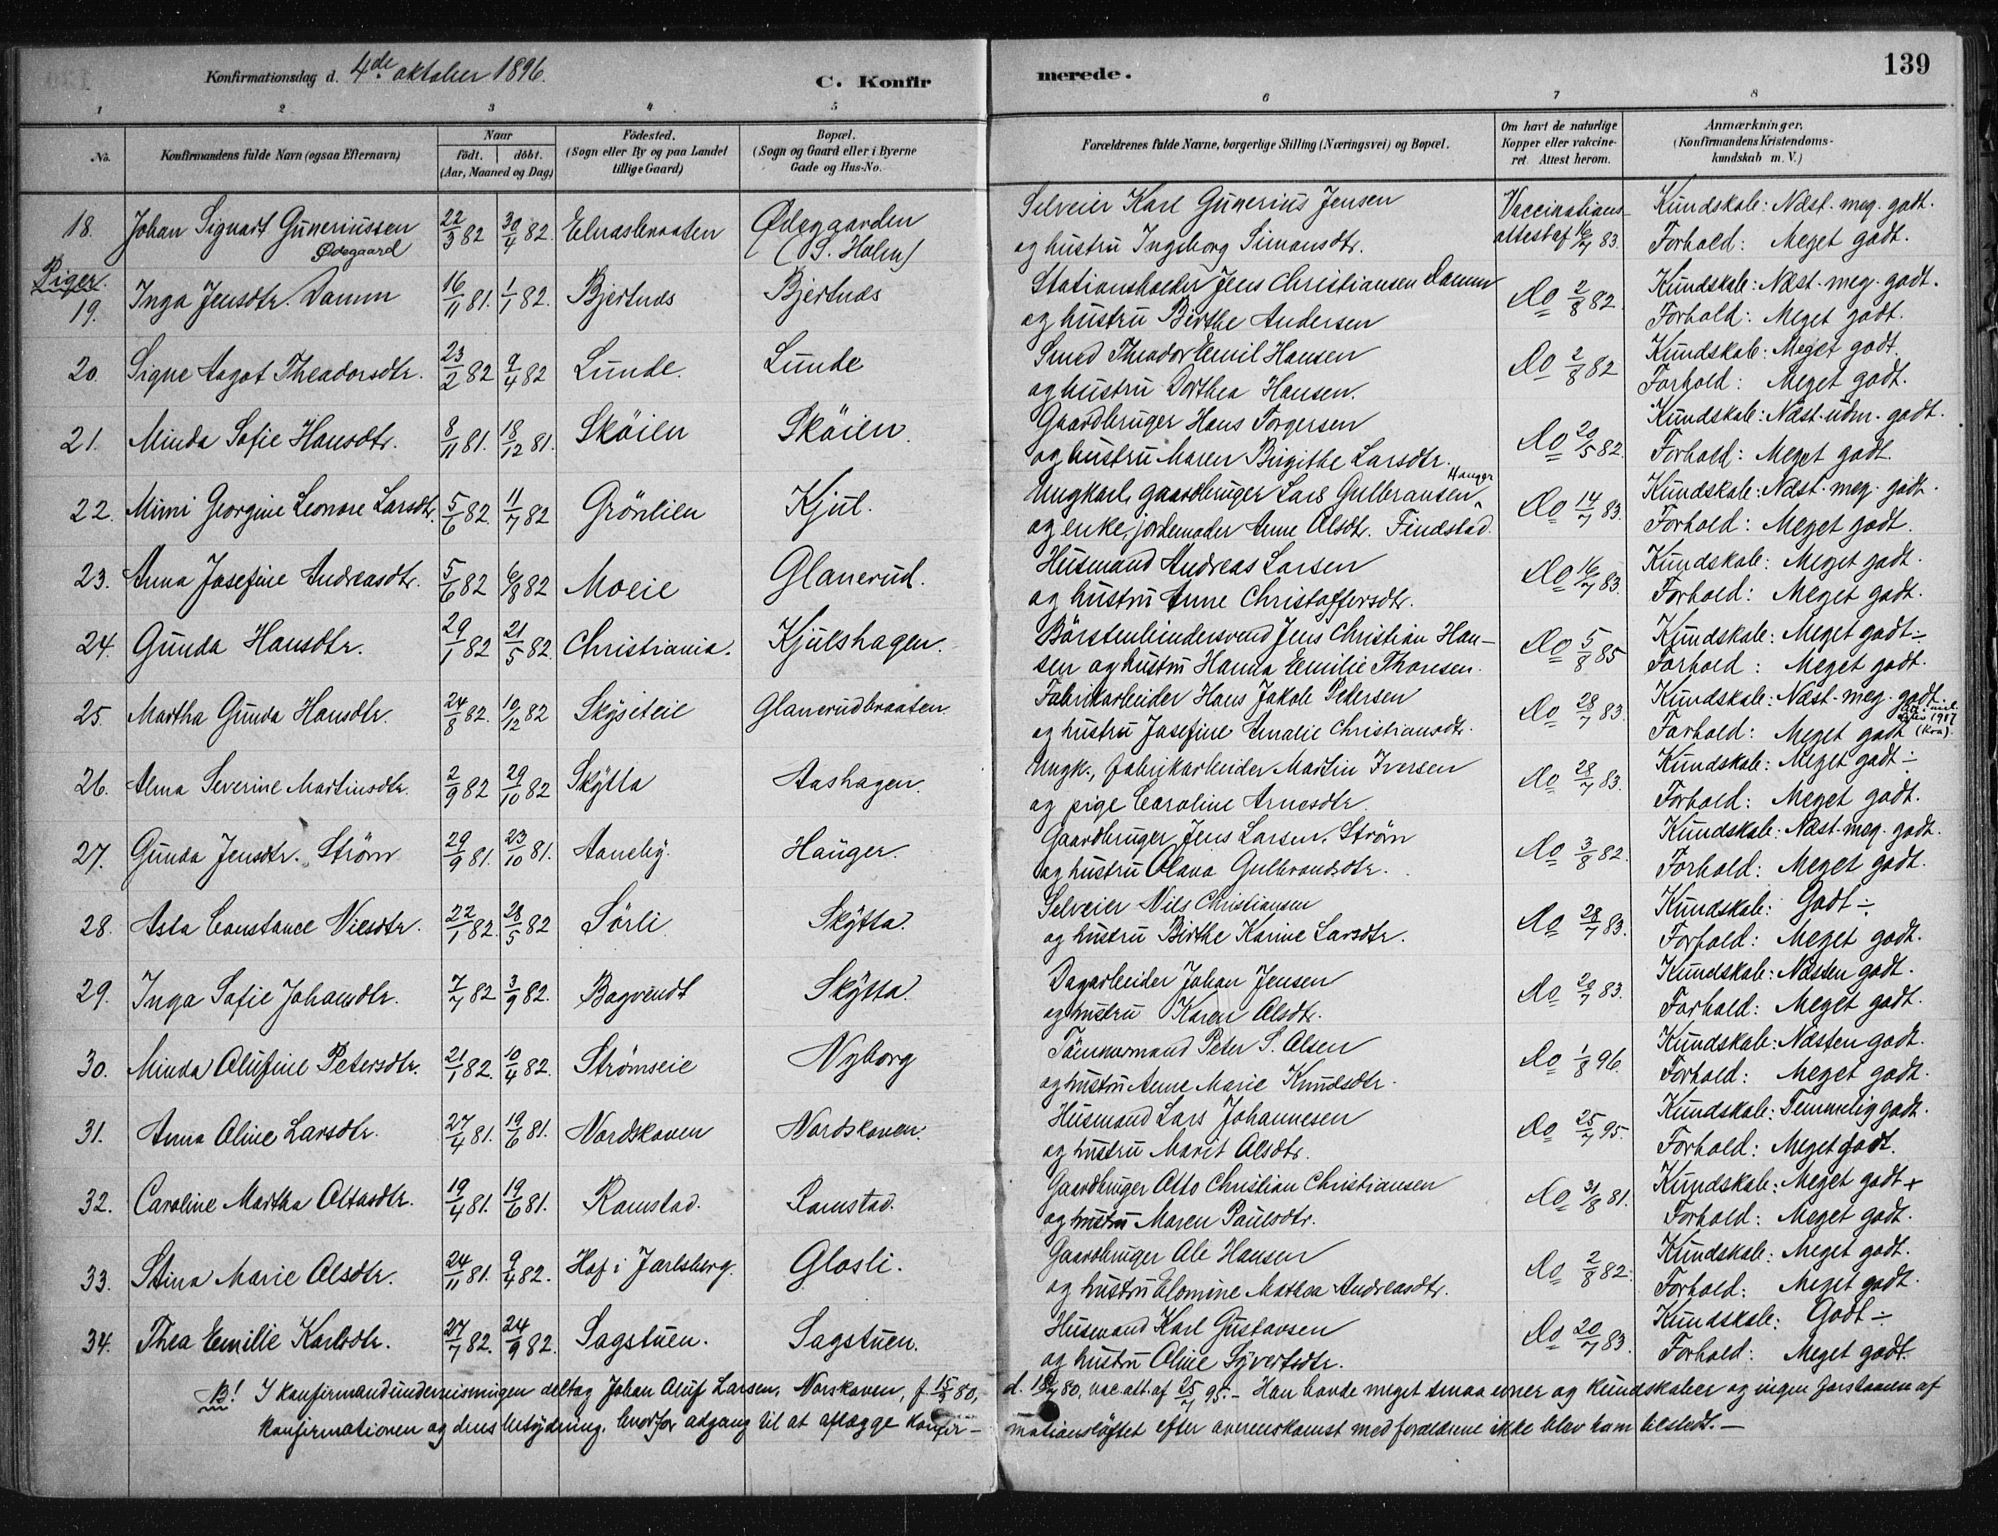 Konfirmationsdag d. 4de oktober 1896.
C. Konfirmerede.
139
1 2 3 4 5 6 7 8
No.
Konfirmandens fulde Navn (ogsaa Efternavn)
Naar
födt. | döbt.
(Aar, Maaned og Dag)
Födested.
(Sogn eller By og paa Landet
tillige Gaard)
Bopæl.
(Sogn og Gaard eller i Byerne
Gade og Hus-No.
Forældrenes fulde Navne, borgerlige Stilling (Næringsvei) og Bopæl.
Om havt de naturlige
Kopper eller vakcine-
ret. Attest herom.
Anmærkninger.
(Konfirmandens Kristendoms-
kundskab m. V.)
18. Johan Sigvart Guneriussen 22/3 82 30/4 82. Elnesbraaten Ødegaarden Selveier Karl Gunerius Jensen Vaccinations- Kundskab: Næst. meg. godt.
Ødegaard (S. Holm) og hustru Ingeborg Simonsdtr. attest af 16/7 83. Forhold: Meget godt.
Piger.
19. Inga Jensdtr. Damm 16/11 81. 1/1 82. Bjertnes Bjertnes Stationsholder Jens Christiansen Damm Do 2/8 82. Kundskab: Næst. meg. godt.
og hustru Birthe Andersen Forhold: Meget godt.
20. Signe Aagot Theodorsdtr. 23/2 82 9/4 82 Lunde. Lunde Smed Theodor Emil Hansen Do 2/8 82 Kundskab: Meget godt.
og hustru Dorthea Hansen. Forhold: Meget godt.
21. Minda Sofie Hansdtr. 8/11 81. 18/12 81. Sköien Sköien. Gaardbruger Hans Torgersen Do 20/5 82. Kundskab: Næst. udm. godt.
og hustru Maren Birgithe Larsdtr. Forhold: Meget godt.
22. Mimi Georgine Leonore Larsdtr. 5/6 82. 11/7 82 Grönlien Kjul. Ungkarl, gaardbruger Lars Gulbransen Hauger Do 14/7 83. Kundskab: Næst. meg. godt.
og enke, jordemoder Anne Olsdtr. Findstad. Forhold: Meget godt.
23. Anna Josefine Andreasdtr. 5/6 82 6/8 82 Moeie Glanerud. Husmand Andreas Larsen Do 16/7 83. Kundskab: Meget godt.
og hustru Anne Christoffersdtr. Forhold: Meget godt.
24. Gunda Hansdtr. 29/1 82 21/5 82. Christiania. Kjulshagen. Börstenbindersvend Jens Christian Han- Do 5/8 85 Kundskab: Meget godt ÷
sen og hustru Hanna Emilie Thonsen. Forhold: Meget godt.
25. Martha Gunda Hansdtr. 24/8 82. 10/12 82 Skyseteie Glanerudbraaten. Fabrikarbeider Hans Jakob Pedersen Do 28/7 83. Kundskab: Næst. meg. godt.
og hustru Josefine Amalie Christiansdtr. Forhold: Meget godt 1907 (Kra).
26. Alma Severine Martinsdtr. 2/9 82 29/10 82 Skytta Aashagen. Ungk., fabrikarbeider Martin Iversen Do 28/7 83. Kundskab: Meget godt ÷
og pige Caroline Arnesdtr. Forhold: Meget godt.
27. Gunda Jensdtr. Ström 29/9 81. 23/10 81. Aaneby. Hauger. Gaardbruger Jens Larsen Ström Do 3/8 82. Kundskab: Næst. meg. godt.
og hustru Olava Gulbrandsdtr. Forhold: Meget godt.
28. Asta Constance Nilsdtr. 22/1 82. 28/5 82 Sörli Skytta. Selveier Nils Christiansen Do 28/7 83. Kundskab: Godt ÷
og hustru Birthe Karine Larsdtr. Forhold: Meget godt.
29. Inga Sofie Johansdtr. 7/7 82 3/9 82. Bagvendt Skytta. Dagarbeider Johan Jensen Do 20/7 83. Kundskab: Næsten godt.
og hustru Karen Olsdtr. Forhold: Meget godt.
30. Minda Olufine Petersdtr. 21/1 82. 10/4 82. Strömseie Nyborg Tömmermand Peter S. Olsen Do 1/8 96. Kundskab: Næsten godt.
og hustru Anne Marie Knudsdtr. Forhold: Meget godt.
31. Anna Oline Larsdtr. 27/4 81. 19/6 81. Nordskoven Nordskoven. Husmand Lars Johannesen Do 25/7 95. Kundskab: Temmelig godt.
og hustru Marit Olsdtr. Forhold: Meget godt.
32. Caroline Martha Ottosdtr. 19/4 81. 19/6 81. Ramstad. Ramstad. Gaardbruger Otto Christian Christiansen Do 31/8 81. Kundskab: Meget godt +
og hustru Maren Paulsdtr. Forhold: Meget godt.
33. Stina Marie Olsdtr. 24/11 81. 9/4 82. Hof i Jarlsberg. Glosli. Gaardbruger Ole Hansen Do 2/8 82. Kundskab: Meget godt.
og hustru Elomine Mathea Andreasdtr. Forhold: Meget godt.
34. Thea Emilie Karlsdtr. 27/7 82. 24/9 82. Sagstuen. Sagstuen. Husmand Karl Gustavsen Do 20/7 83. Kundskab: Godt ÷
og hustru Oline Syvertsdtr. Forhold: Meget godt.
NB! I konfirmandundervisningen deltog Johan Oluf Larsen, Norskoven, f. 15/3 80, d. 80, vac. att. af 25/7 95. – Han havde meget smaa evner og kundskaber og ingen forstaaen af
konfirmationen og dens betydning, hvorfor adgang til at aflægge konfir- mationslöftet efter overenskomst med forældrene ikke blev ham tilstedt. –